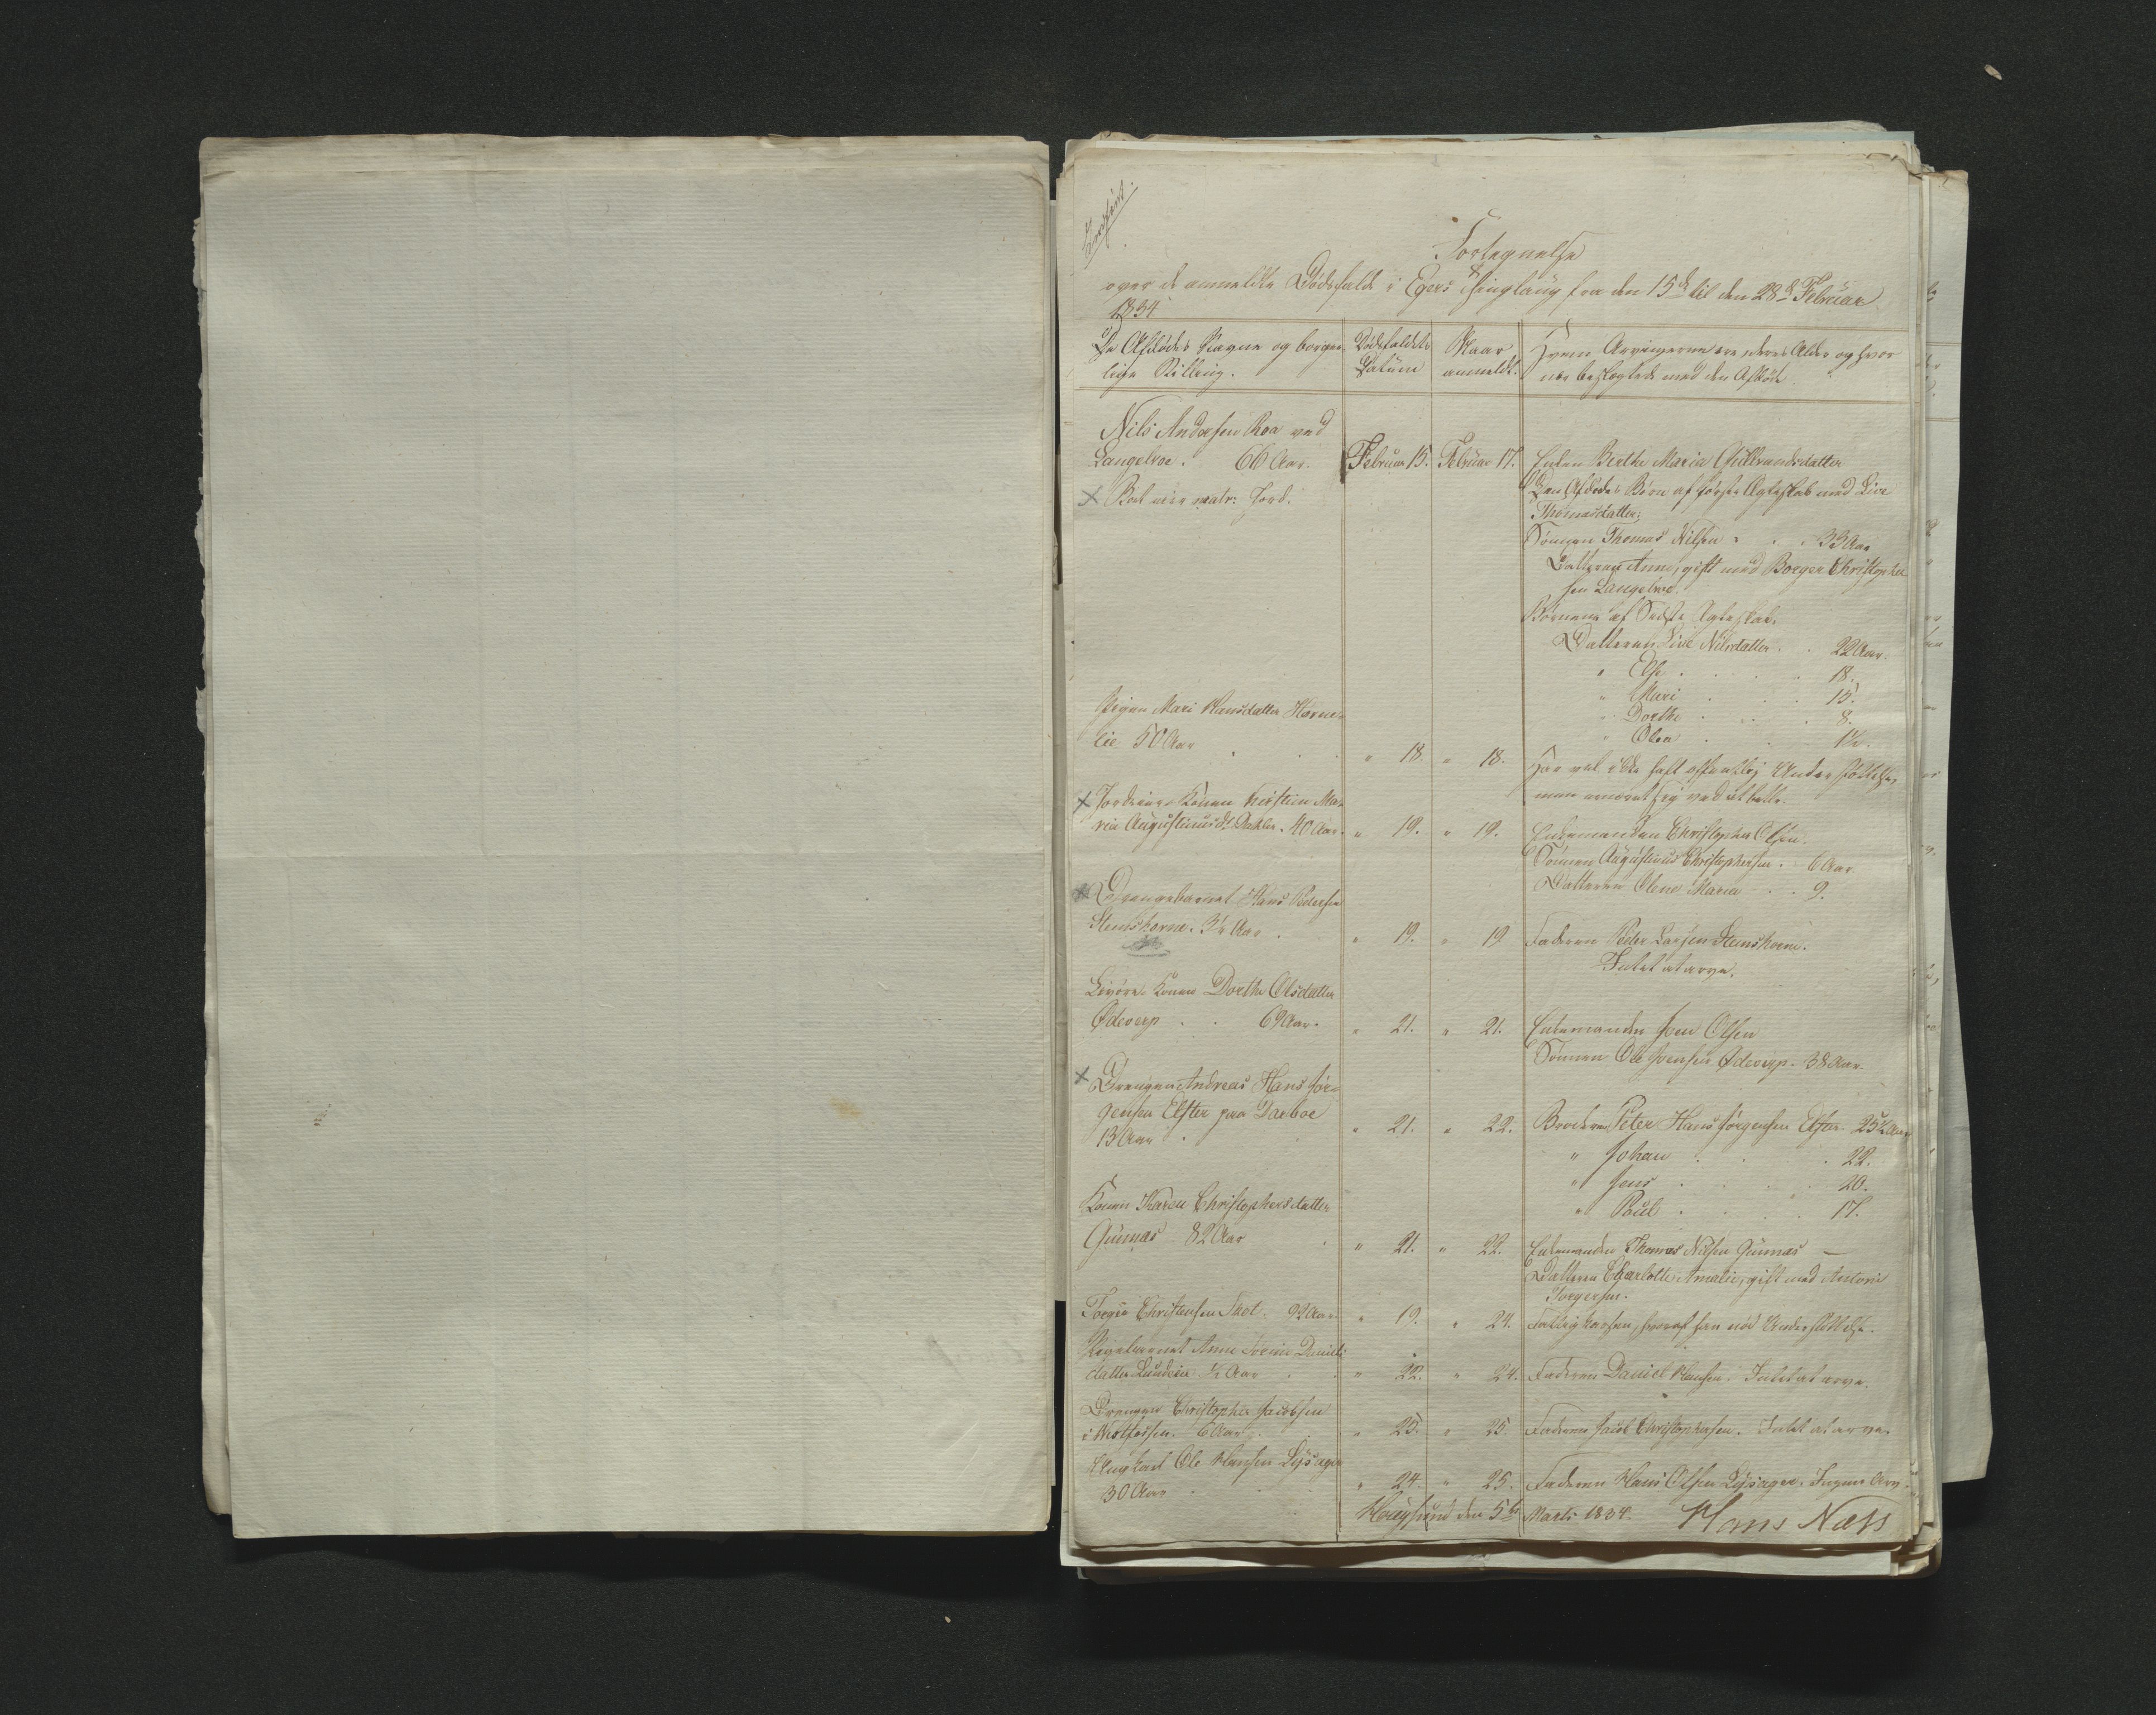 Indført.
Fortegnelse
over de anmeldte Dødsfald i Egers Thinglaug fra den 15de til den 28de Februar
1834
De Afdødes Navne og borger-
lige Stilling.
Dødsfaldets
Datum
Naar
anmeldt.
Hvem Arvingerne ere deres Alder og hvor
nær beslægtede med den Afdøde
Nils Andersen Roa ved
Langeloe. 66 Aar.
Februar 15. Februar 17.
X matr: Jord.
Enken Berthe Maria Gulbrandsdatter
Den Afdødes Børn af første Ægteskab med Live
Thomasdatter:
Sønnen Thomas Nilsen . . 33 Aar
Datteren Anne, gift med Borger Christopher
sen Langeloe.
Børnene af Sidste Ægteskab.
Datteren Live Nilsdatter . . 22 Aar.
" Else . . . 18.
" Mari . . 15.
" Dorthe . . 8.
" Olea . . 1½.
Pigen Mari Hansdatter Horne-
lie 50 Aar
" 18. " 18.
Har vel ikke haft offentlig Understøttelse,
men ernæret sig ved at betle.
X Jordeier Konen Kirstien Ma-
ria Augustinusdr Dahler. 40 Aar.
" 19. " 19.
Enkemanden Christopher Olsen.
Sønnen Augustinus Christophersen. 6 Aar
Datteren Olene Maria . . 9.
X Drengebarnet Hans Pedersen
Stenshorne. 3½ Aar.
" 19. " 19
Faderen Peder Larsen Stenshorne.
Intet at arve.
Livøre. Konen Dorthe Olsdatter
Ødeverp . . 69 Aar.
" 21. " 21.
Enkemanden Iver Olsen
Sønnen Ole Iversen Ødeverp. 38 Aar.
X Drengen Andreas Hans Jør-
gensen Elster paa Darboe
13 Aar
" 21. " 22.
Broderen Peter Hans Jørgensen Elster. 25½ Aar
" Johan . . 22.
" Jens . . 20.
" Poul . . 17.
Konen Karen Christophersdatter
Gunnas 82 Aar
" 21. " 22.
Enkemanden Thomas Nilsen Gunnas —
Datteren Charlotte Amalie, gift med Antoni
Torgersen.
Torgeir Christensen Skot. 92 Aar.
" 19. " 24.
Fattigkassen, hvoraf han nød Understøttelse.
Pigebarnet Anne Sørine Daniels
datter Lundeie ½ Aar
" 22. " 24.
Faderen Daniel Hansen. Intet at arve.
Drengen Christopher Jacobsen
i Westfossen. 6 Aar
" 25. " 25.
Faderen Jacob Christophersen. Intet at arve.
Ungkarl Ole Hansen Lysager
30 Aar
" 24. " 25.
Faderen Hans Olsen Lysager. Ingen Arv.
Hougsund den 5te Marts 1834. Hans Næss